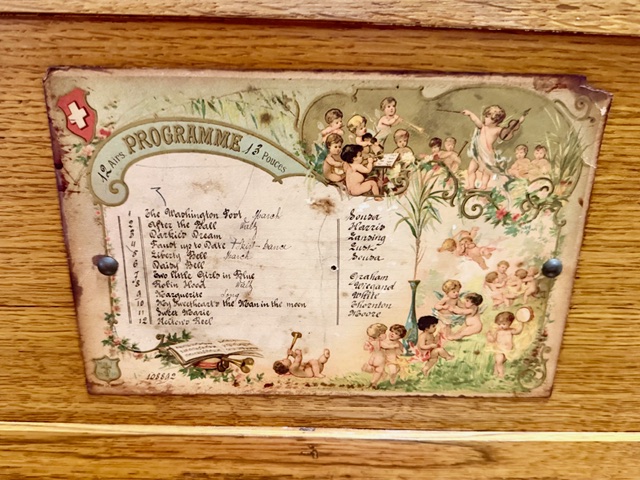 12 Airs PROGRAMME 13 Pouces
1 The Washington Post March Sousa
2 After the Ball Waltz Harris
3 Darkie's Dream Lansing
4 Faust up to Date Lutz
5 Liberty Bell March Sousa
6 Daisy Bell
7 Two little Girls in Blue Graham
8 Robin Hood Waltz Wiegand
9 Marguerite White
10 My Sweetheart's the Man in the moon Thornton
11 Sweet Marie Moore
12 Nelson's Reel
108882